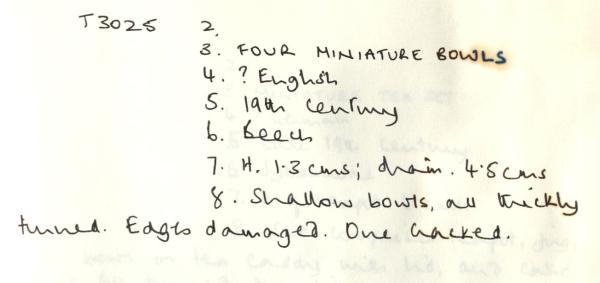 T3025 2.
3. FOUR MINIATURE BOWLS
4. ? English
5. 19th century
6. beech
7. H. 1.3 cms; diam. 4.5 cms
8. Shallow bowls, all thickly
turned. Edges damaged. One cracked.